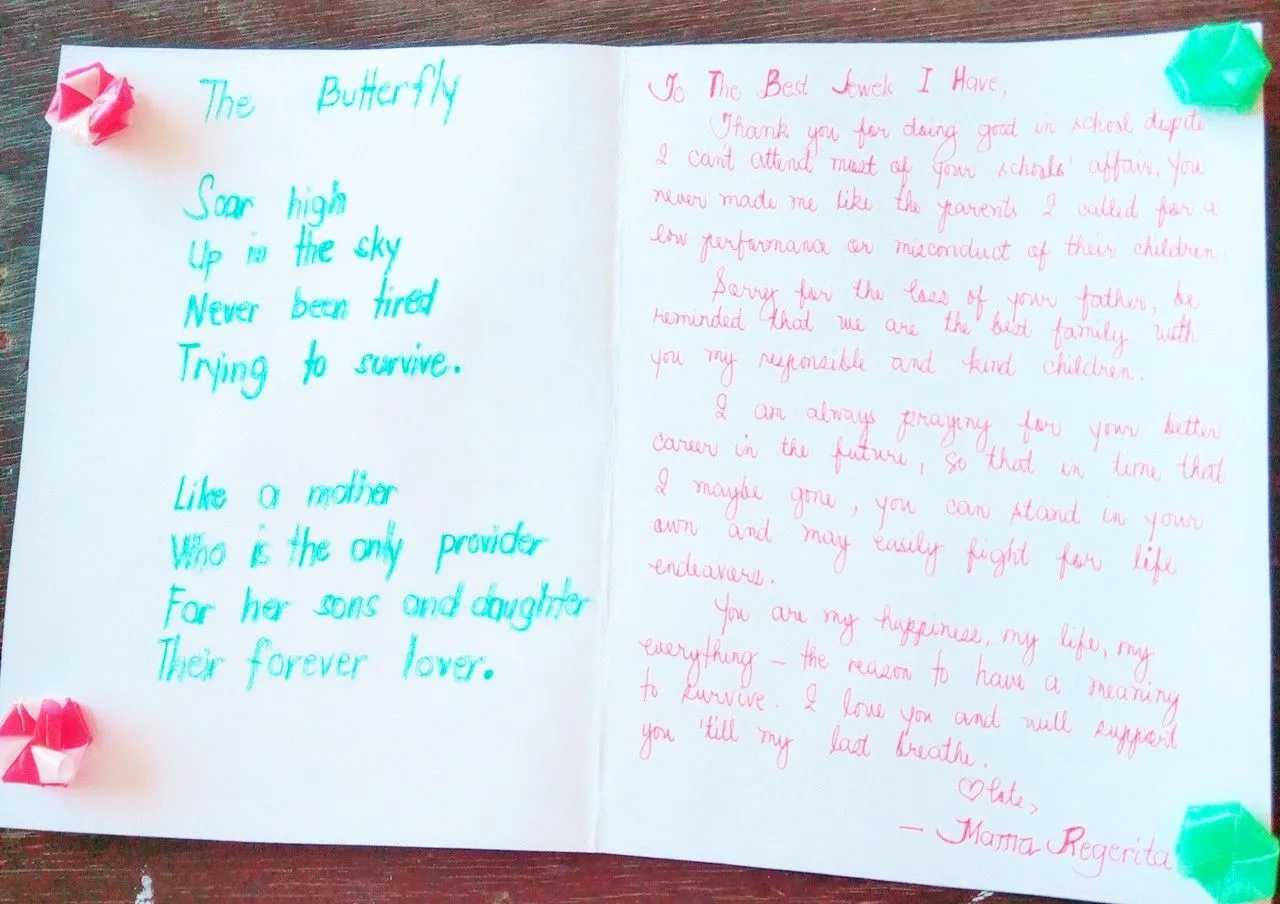 The Butterfly
Soar high
Up in the sky
Never been tired
Trying to survive.
Like a mother
Who is the only provider
For her sons and daughter
Their forever lover.
To The Best Jewels I Have,
Thank you for doing good in school despite
I can't attend most of your schools' affair. You
never made me like the parents I called for a
low performance or misconduct of their children.
Sorry for the loss of your father, be
reminded that we are the best family with
you my responsible and kind children.
I am always praying for your better
career in the future, so that in time that
I maybe gone, you can stand in your
own and may easily fight for life
endeavors.
You are my happiness, my life, my
everything – the reason to have a meaning
to survive. I love you and will support
you 'till my last breathe.
♡lots,
– Mama Regerita